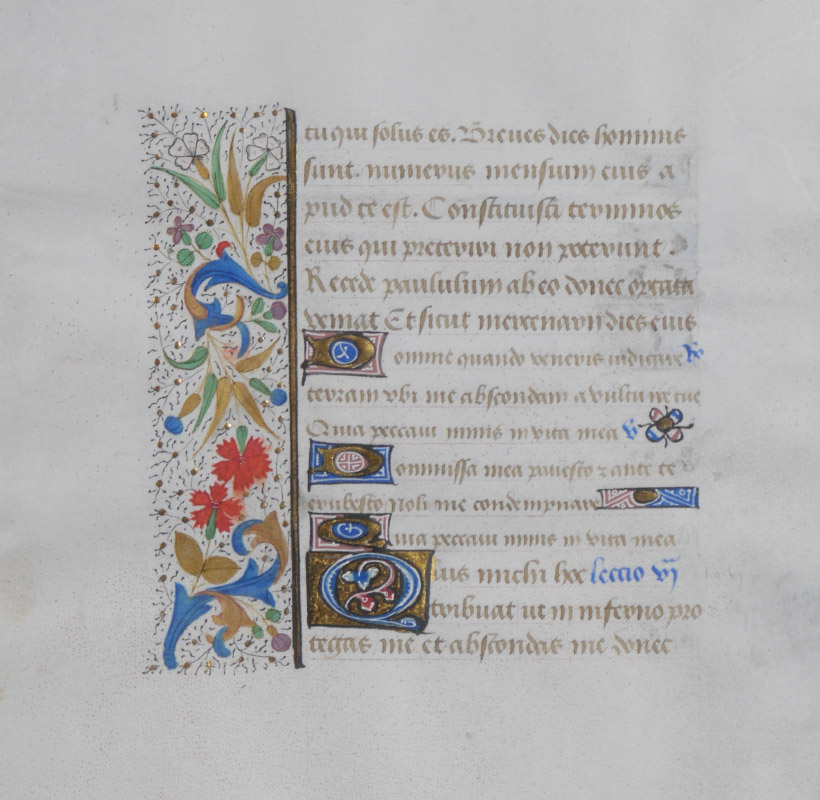 tu qui solus es. Breues dies hominis
sunt. numerus mensium eius a
pud te est. Constituisti terminos
eius qui preteriri non poterunt.
Recede paululum ab eo donec optata
veniat Et sicut mercenarii dies eius
Domine quando veneris iudicare R
terram vbi me abscondam a vultu ire tue
Quia peccaui nimis in vita mea v
Commissa mea pauesco z ante te
erubesco Noli me condempnare
Quia peccaui nimis in vita mea
Quis michi hoc leccio vj
tribuat ut in inferno pro
tegas me et abscondas me donec